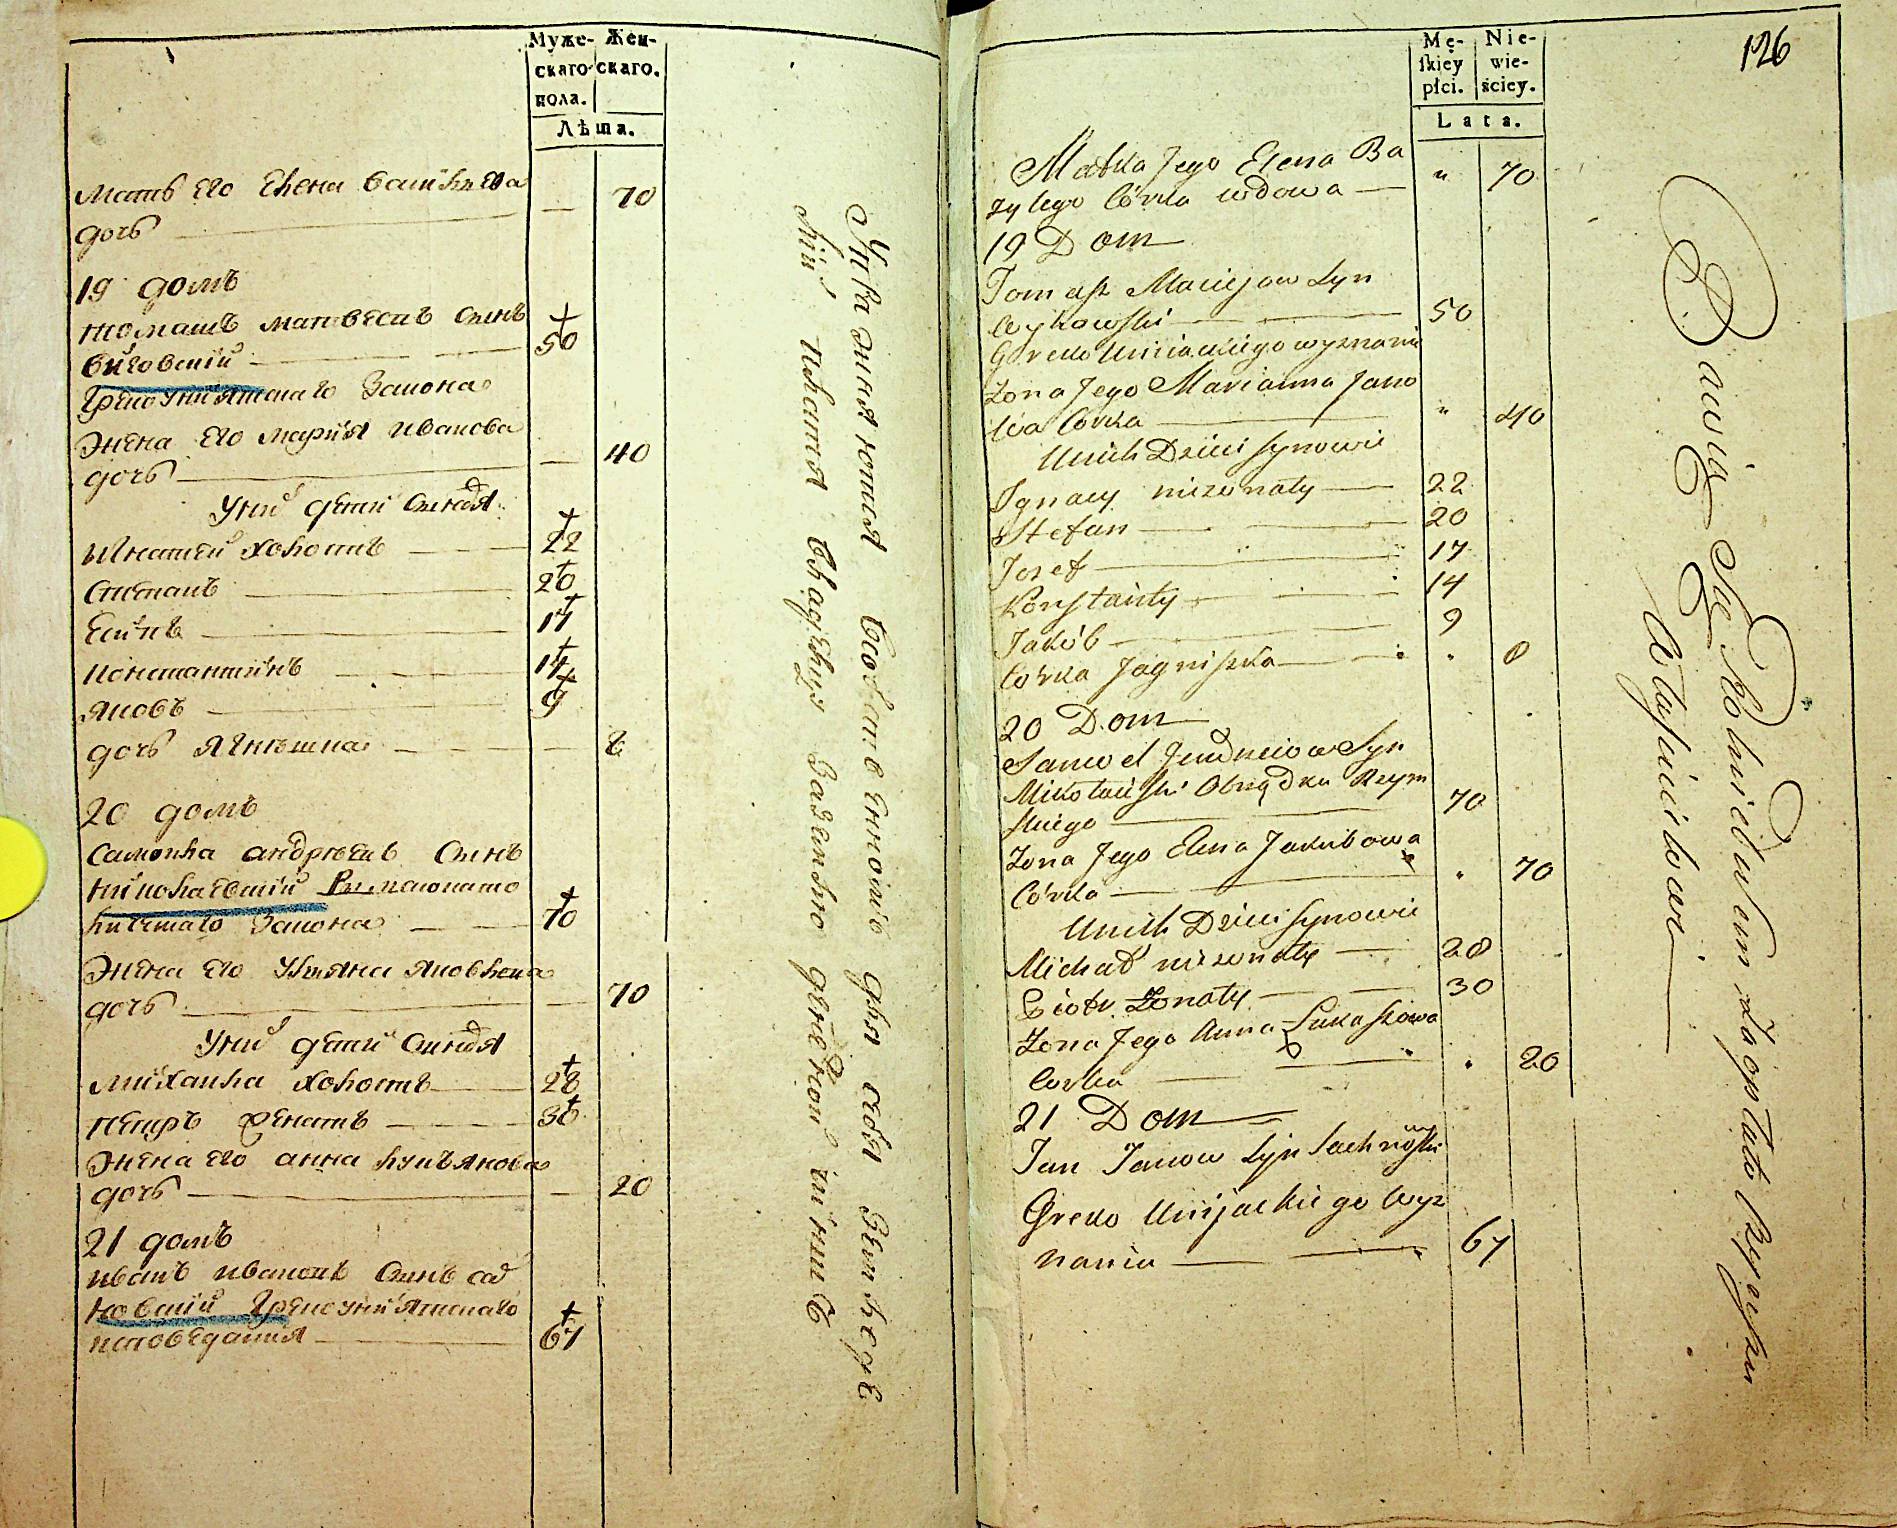 Муже-
скаго
пола.
Жен-
скаго.
Лѣта.
Мать Его Елена Василѣва
дочь — 70
19 домъ
Томашъ Матвеевъ Сынъ
Выговский 50
Грекоуниятскаго Закона
Жена Его Мария Иванова
дочь — 40
Унихъ дети Сыновя
Игнатей Холостъ 22
Степанъ 20
Есипъ 17
Константинъ 14
Яковъ 9
дочь Ягнешка 8
20 домъ
Самойла андреевъ Сынъ
Николаевский Римскокато
лическаго Закона 70
Жена Его Ульяна Яковлева
дочь — 70
Унихъ дети Сыновя
Михайла Холостъ 28
Петръ Женатъ 30
Жена Его анна Лукьянова
дочь — 20
21 домъ
Иванъ Ивановъ Сынъ сах
новский Грекоуниятскаго
исповедания 67
Упражняются
для себя
126
Mę-
ſkiey
płci.
Nie-
wie-
ściey.
Lata.
Matka Jego Elena Ba
zylego Córka wdowa — " 70
19 Dom
Tomasz Maciejow Syn
Wykowski — 50
Greko Uniackiego wyznania
Zona Jego Marianna Jano
wa Corka — " 40
Unich Dzieci Synowie
Ignacy niezonaty — 22
Stefan — 20
Jozef — 17
Konstanty — 14
Jakób — 9
Córka Jagniszka — 8
20 Dom
Samoel Jendrzeiow Syn
Mikołaiſki Obrządku Rzym
ſkiego — 70
Zona Jego Elena Jakubowa
Córka — 70
Unich Dzieci Synowie
Michał niezonaty — 28
Piotr Zonaty — 30
Zona Jego Anna Łukaszowa
Corka — 20
21 Dom
Jan Janow Syn Sachnowſki
Greko Unijackiego Wyz
nania — 67
Bawią Się Rolnictwem
Właścicielowi